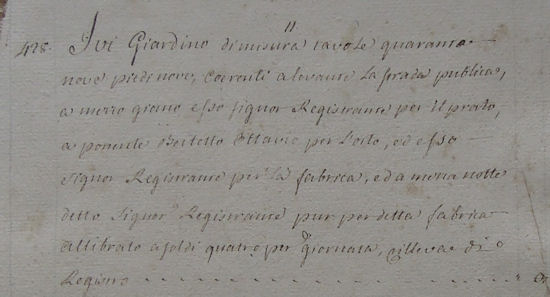 11
428. Ivi Giardino di misura tavole quaranta
nove piedi nove, coerenti a levante la strada publica,
a mezzo giorno esso signor Registrante per il prato,
a ponente Bertetto Ottavio per l'orto, ed esso
signor Registrante per la fabrica, ed a meza notte
detto signor Registrante pur per detta fabrica
allibrato a soldi quatro per giornata, rilleva di
Registro